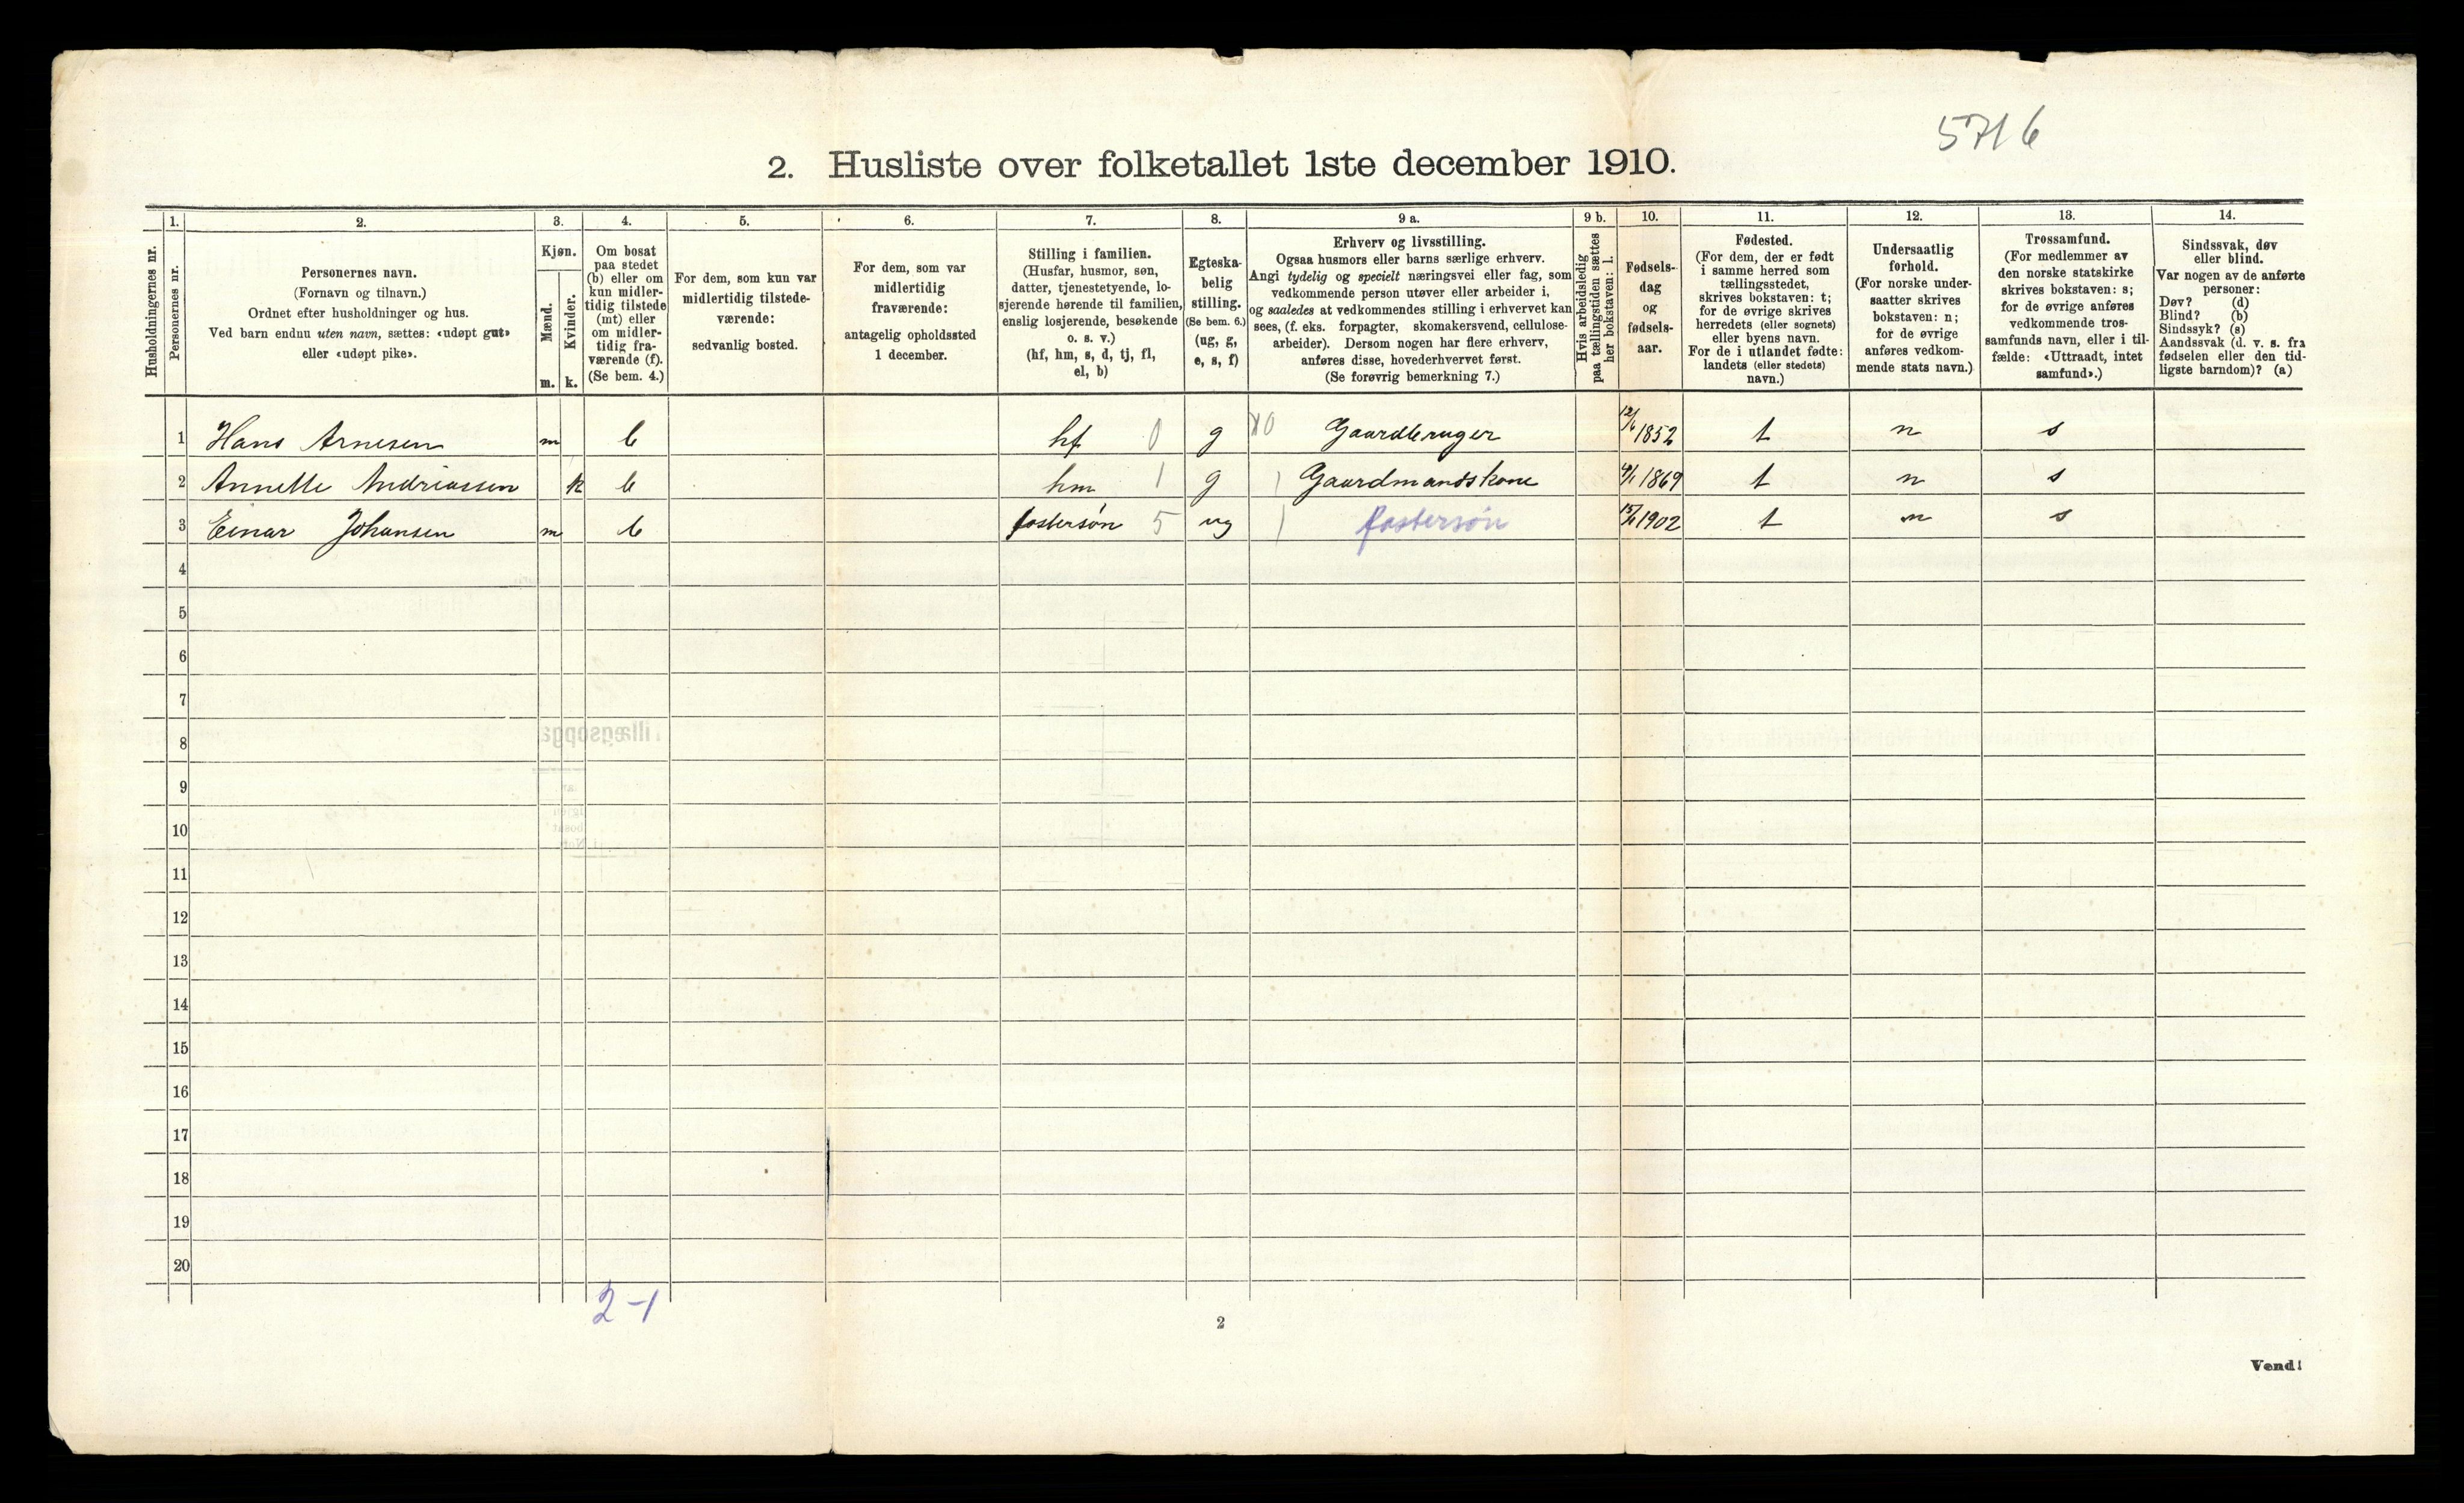 5716
2. Husliste over folketallet 1ste december 1910.
Husholdningernes nr.
1.
Personernes nr.
2.
Personernes navn.
(Fornavn og tilnavn.)
Ordnet efter husholdninger og hus.
Ved barn endnu uten navn, sættes: «udøpt gut»
eller «udøpt pike».
3.
Kjøn.
Mænd.
m.
Kvinder.
k.
4.
Om bosat
paa stedet
(b) eller om
kun midler-
tidig tilstede
(mt) eller
om midler-
tidig fra-
værende (f).
(Se bem. 4.)
5.
For dem, som kun var
midlertidig tilstede-
værende:
sedvanlig bosted.
6.
For dem, som var
midlertidig
fraværende:
antagelig opholdssted
1 december.
7.
Stilling i familien.
(Husfar, husmor, søn,
datter, tjenestetyende, lo-
sjerende hørende til familien,
enslig losjerende, besøkende
o. s. v.)
(hf, hm, s, d, tj, fl,
el, b)
8.
Egteska-
belig
stilling.
(Se bem. 6.)
(ug, g,
e, s, f)
9 a.
Erhverv og livsstilling.
Ogsaa husmors eller barns særlige erhverv.
Angi tydelig og specielt næringsvei eller fag, som
vedkommende person utøver eller arbeider i,
og saaledes at vedkommendes stilling i erhvervet kan
sees, (f. eks. forpagter, skomakersvend, cellulose-
arbeider). Dersom nogen har flere erhverv,
anføres disse, hovederhvervet først.
(Se forøvrig bemerkning 7.)
9 b.
Hvis arbeidsledig
paa tællingstiden sættes
her bokstaven: l.
10.
Fødsels-
dag
og
fødsels-
aar.
11.
Fødested.
(For dem, der er født
i samme herred som
tællingsstedet,
skrives bokstaven: t;
for de øvrige skrives
herredets (eller sognets)
eller byens navn.
For de i utlandet fødte:
landets (eller stedets)
navn.)
12.
Undersaatlig
forhold.
(For norske under-
saatter skrives
bokstaven: n;
for de øvrige
anføres vedkom-
mende stats navn.)
13.
Trossamfund.
(For medlemmer av
den norske statskirke
skrives bokstaven: s;
for de øvrige anføres
vedkommende tros-
samfunds navn, eller i til-
fælde: «Uttraadt, intet
samfund».)
14.
Sindssvak, døv
eller blind.
Var nogen av de anførte
personer:
Døv? (d)
Blind? (b)
Sindssyk? (s)
Aandssvak (d. v. s. fra
fødselen eller den tid-
ligste barndom)? (a)
1 Hans Arnesen m b hf 0 g Gaardbruger 1852 t n s
2 Annette Andriassen k b hm 1 g Gaardmandskone 1869 t n s
3 Einar Johansen m b fostersøn 5 ug fostersøn 1902 t n s
4
5
6
7
8
9
10
11
12
13
14
15
16
17
18
19
20
2-1
2
Vend!